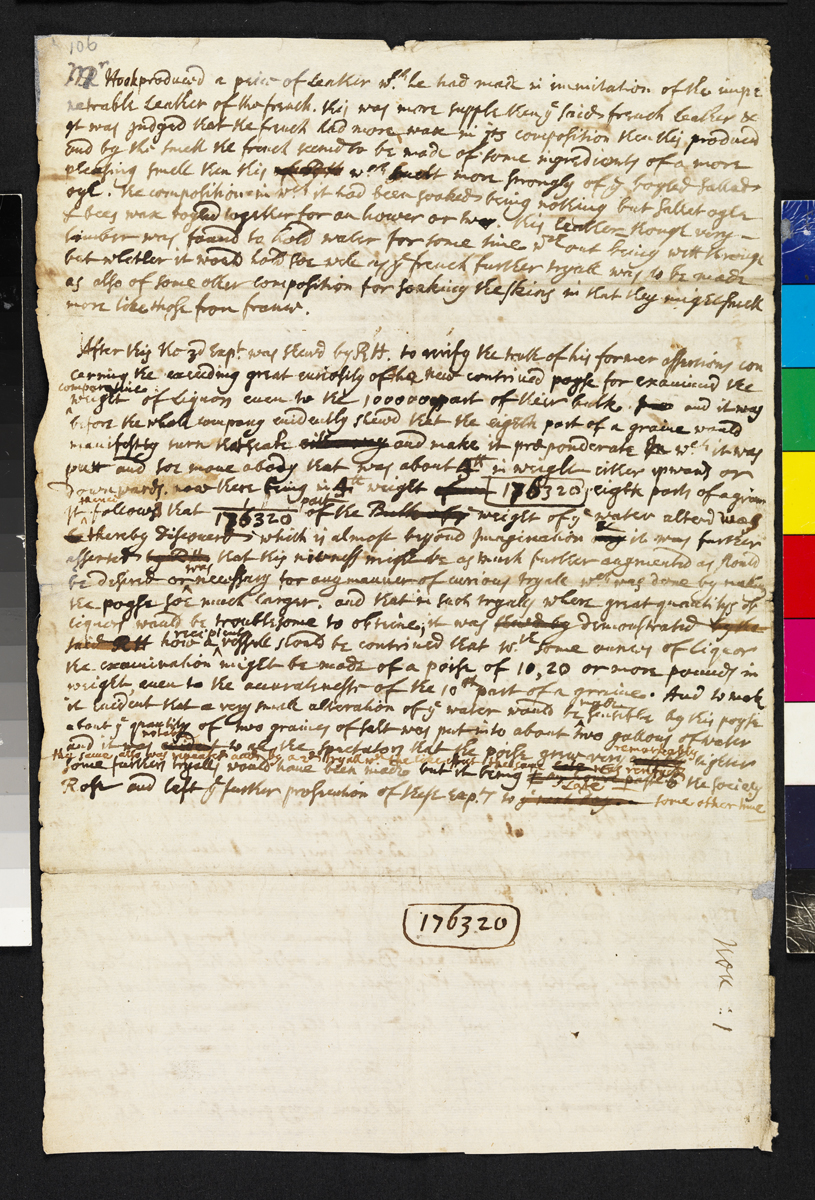 106
Mr Hook produced a peice of Leather wch he had made in immitation of the impe
netrable Leather of the french. this was more supple then ye said french leather &
It was judged that the french had more wax in its composition then this produced
and by the smell the french seemd to be made of some ingredients of a more
pleasing smell then this wch smelt more strongly of ye boyled sallad
oyl. the composition in wch it had been soaked being nothing but sallet oyle
& bees wax boyled together for an hower or two. this leather though very
limber was found to hold water for some time wthout being wett through
but whether it would hold soe well as ye french further tryall was to be made
as also of some other composition for soaking the skins in that they might smell
more like those from france.
After this the 3d Expt was shewd by RH. to verify the truth of his former assertions con
cerning the exceeding great curiosity of the new contrived poyse for examining the
comparative
weight of Liquors even to the 100000 part of their bulk. and it was
before the whole company evidently shewd that the eighth part of a graine would
manifestly turn the scale and make it præponderate wch it was
putt and soe move a body that was about 4 lb in weight either upwards or
downwards. now there being in 4 lb weight 176320 eighth parts of a grain
hence
It follows that 1/176320 part of the weight of ye water alterd was
thereby discoverd which is almost beyond Imagination it was further
asserted that this niceness might be as much further augmented as should
was
be desired or necessary for any manner of curious tryall wch was done by making
the poyse soe much larger. and that in such tryalls where great quantitys of
liquors would be troublesome to obteine, it was demonstrated
recipient
how a vessell should be contrived that wth some ounces of liquor
the examination might be made of a poise of 10, 20 or more pounds in
weight, even to the accurateness of the 10th part of a graine. And to make
it evident that a very small alteration of ye water would be made sensible by this poyse
about ye quantity of two graines of salt was put into about two gallons of water
and it was to all the spectators that the poise grew very remarkably lighter
some further tryalls would have been made but it being late the society
Rose and left ye further prosecution of these Expts to some other time
176320
Hook : 1